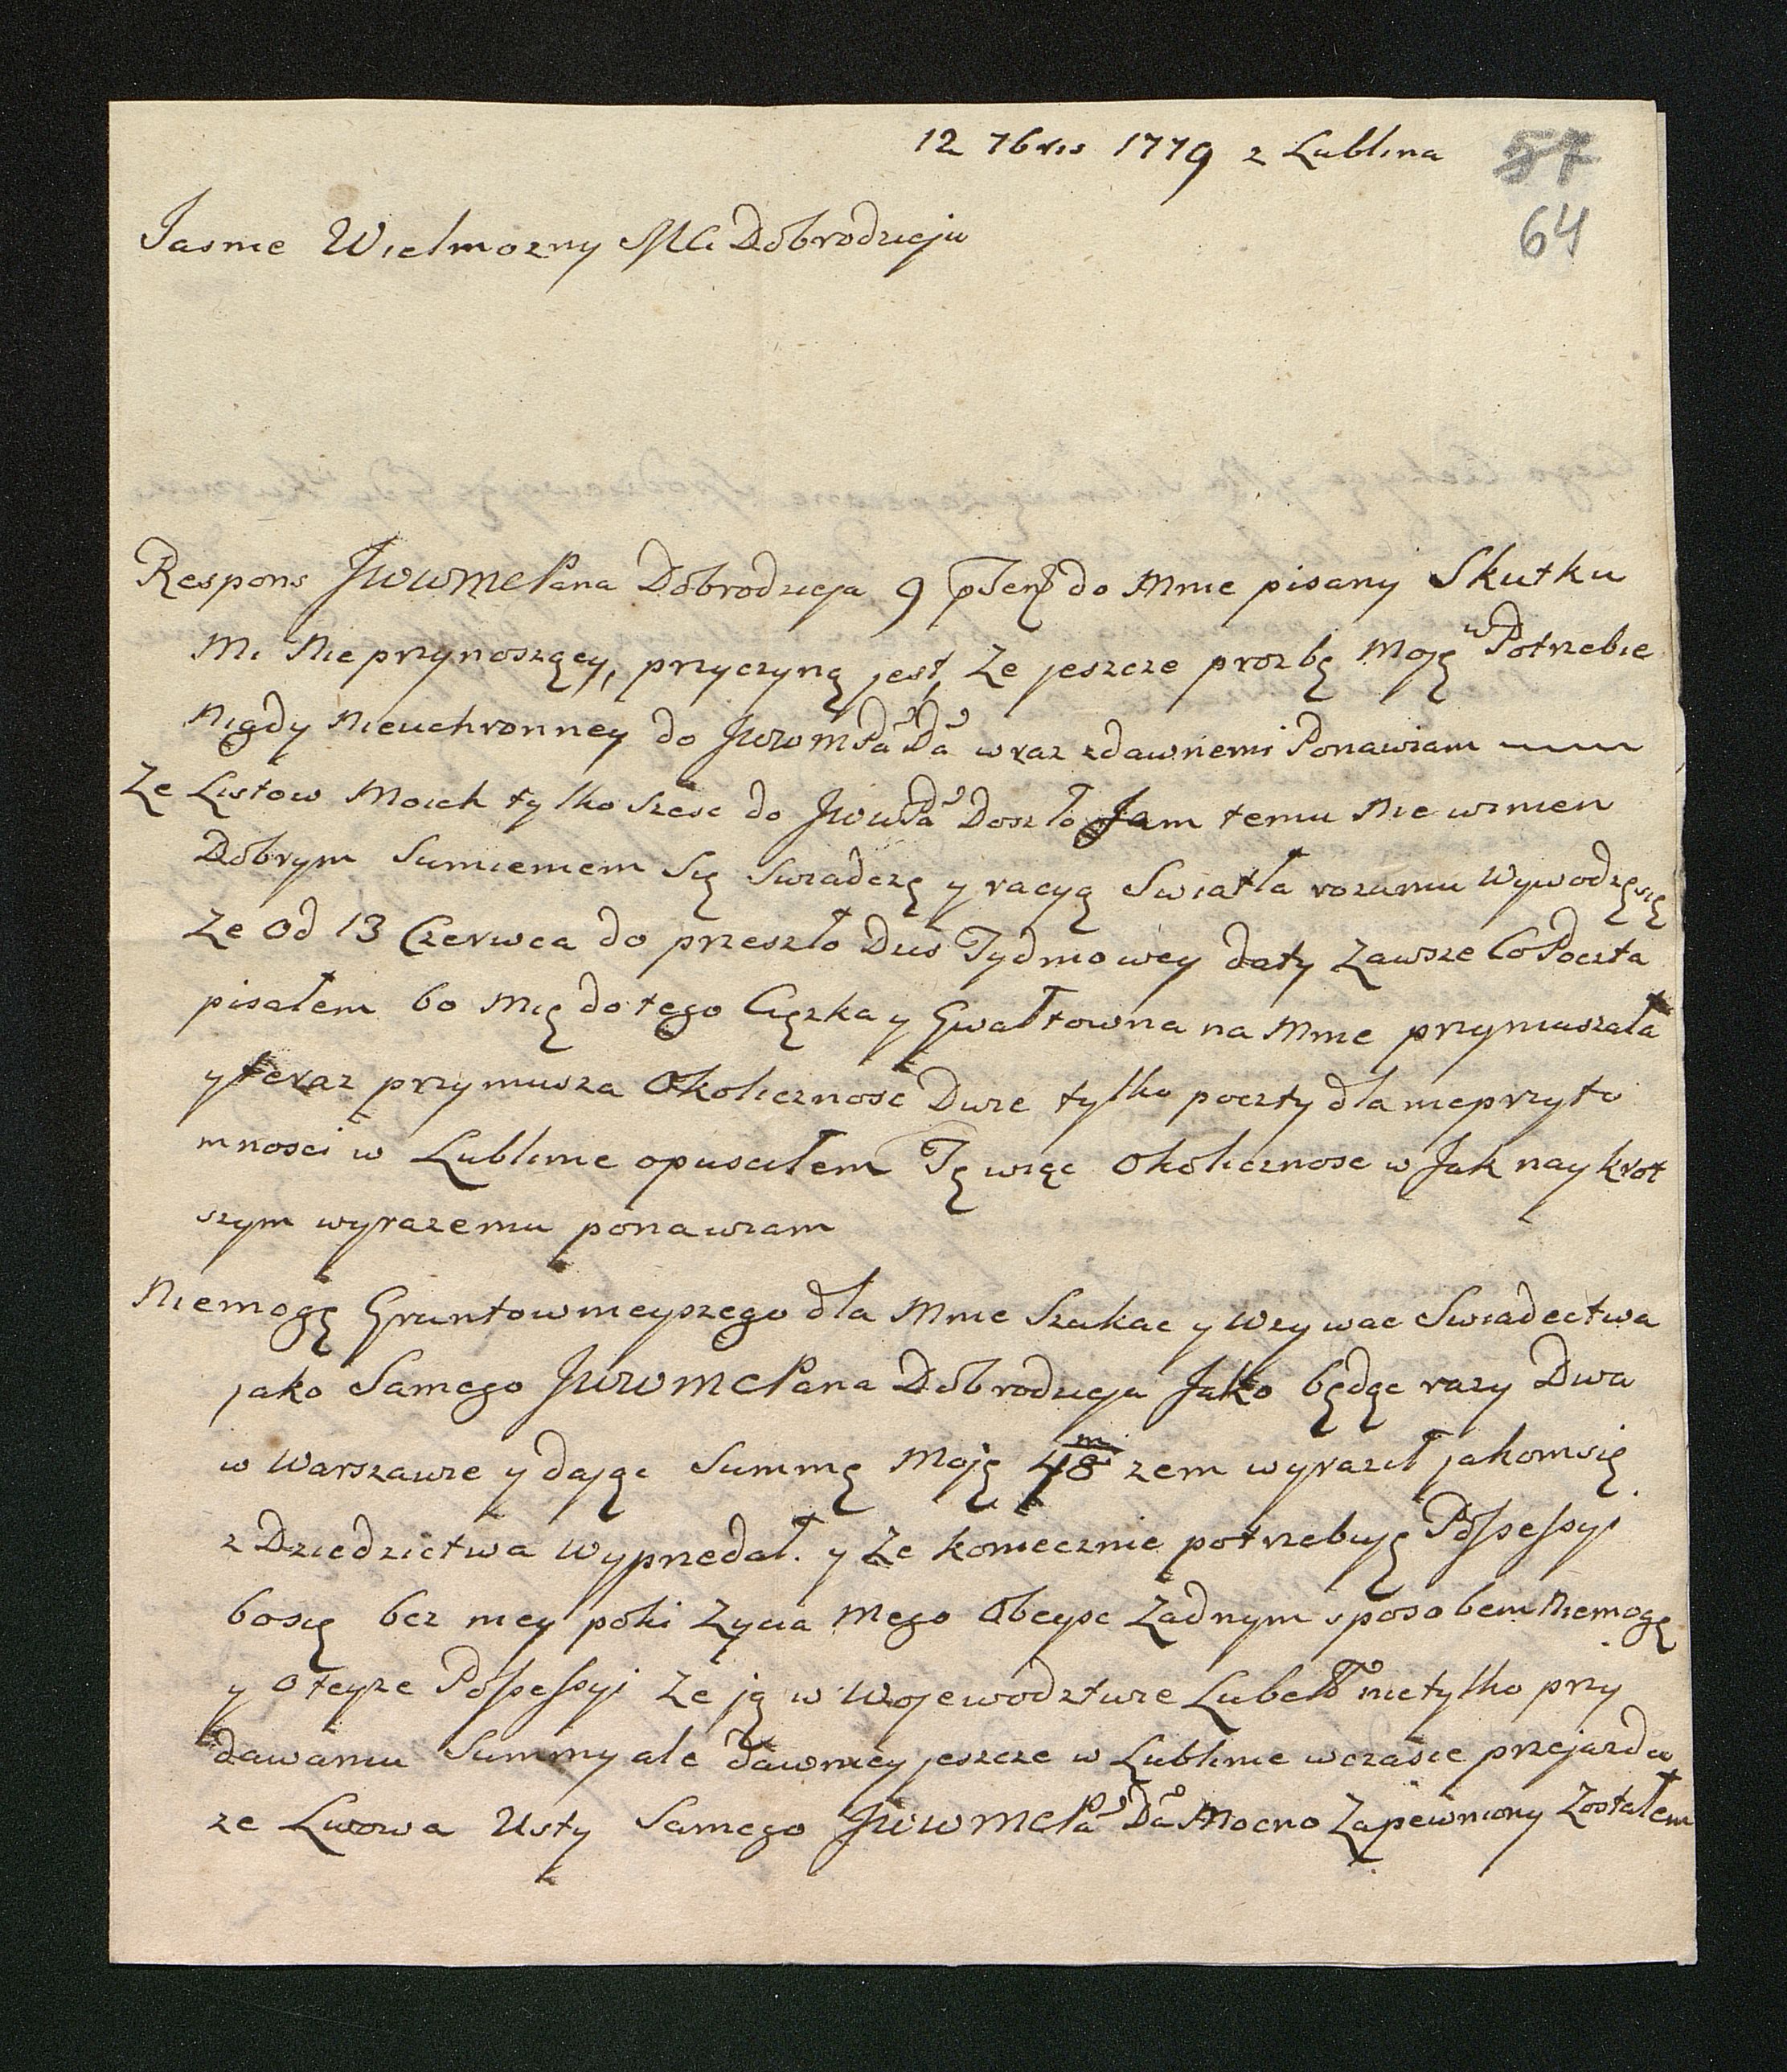 12 7bris 1779 z Lublina
57
64
Jasnie Wielmozny Mci Dobrodzieju
Respons JWWMCPana Dobrodzieja 9 pSentis do Mnie pisany Skutku
Mi Nie przynoszący, przyczyną jest, Ze jeszcze prozbę Moję w Potrzebie
Nigdy Nieuchronney do JWWmPa Da wraz zdawnemi Ponawiam
Ze Listow Moich tylko szesc do JWWPa Da Doszło Jam temu Nie winien
Dobrym Sumieniem Się Swiadczę y racyą Swiatła rozumu Wywodzę się
Ze Od 13 Czerwca do przeszło Dwo Tydniowey daty Zawsze Co Poczta
pisałem bo Mię do tego Cięzka y Gwałtowna na Mnie przymuszała
y teraz przymusza Okolicznosc Dwie tylko poczty dla nieprzyto
mnosci w Lublinie opusciłem Tę więc Okolicznosc w Jak naykrot
szym wyrazeniu ponawiam
Niemogę Gruntownieyszego dla Mnie Szukac y Wzywac Swiadectwa
jako Samego JWWMCPana Dobrodzieja Jako będąc razy Dwa
w Warszawie y dając Summę Moję 48 m zem wyraził jakomsię
z Dziedzictwa Wyprzedał. y Ze koniecznie potrzebuję Possessyi
bosię bez niey poki Zycia Mego Obeysc Zadnym sposobem Niemogę
y Oteyze Possessyi Ze ją w Wojewodztwie Lubell nietylko przy
dawaniu Summy ale dawniey jeszcze w Lublinie wczasie przejazdu
ze Lwowa Usty Samego JWWMCPa Da Mocno Zapewniony Zostałem